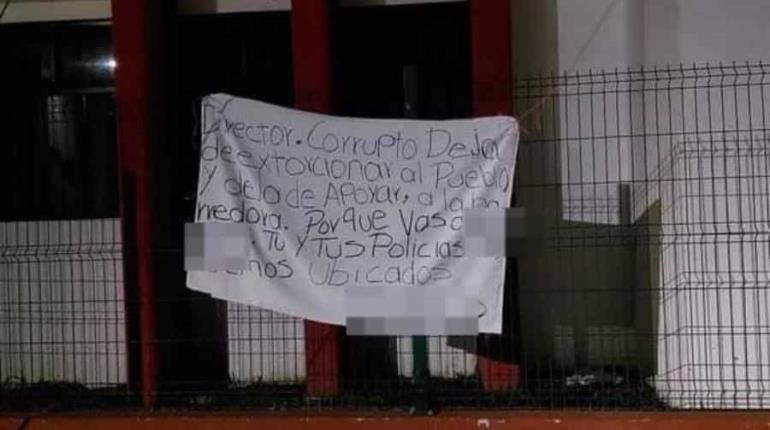 Director. Corrupto Deja
de extorcionar al Pueblo
Y deja de Apoyar, a la
rredora. Porque Vas a
Tu y Tus Policias
Ubicados